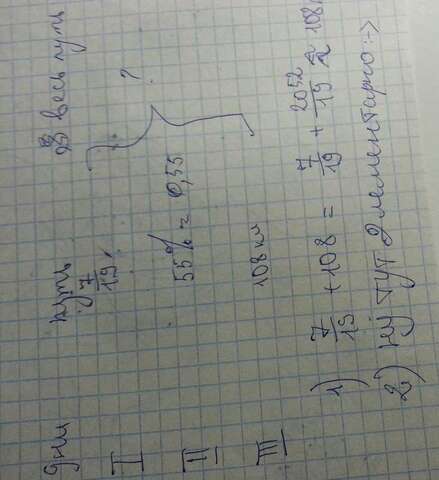 дни путь весь путь
I 7/19
II 55% = 0,55 ?
III 108 км
1) 7/19 + 108 = 7/19 + 2052/19 ≈ 108
2) ну тут элементарно :->